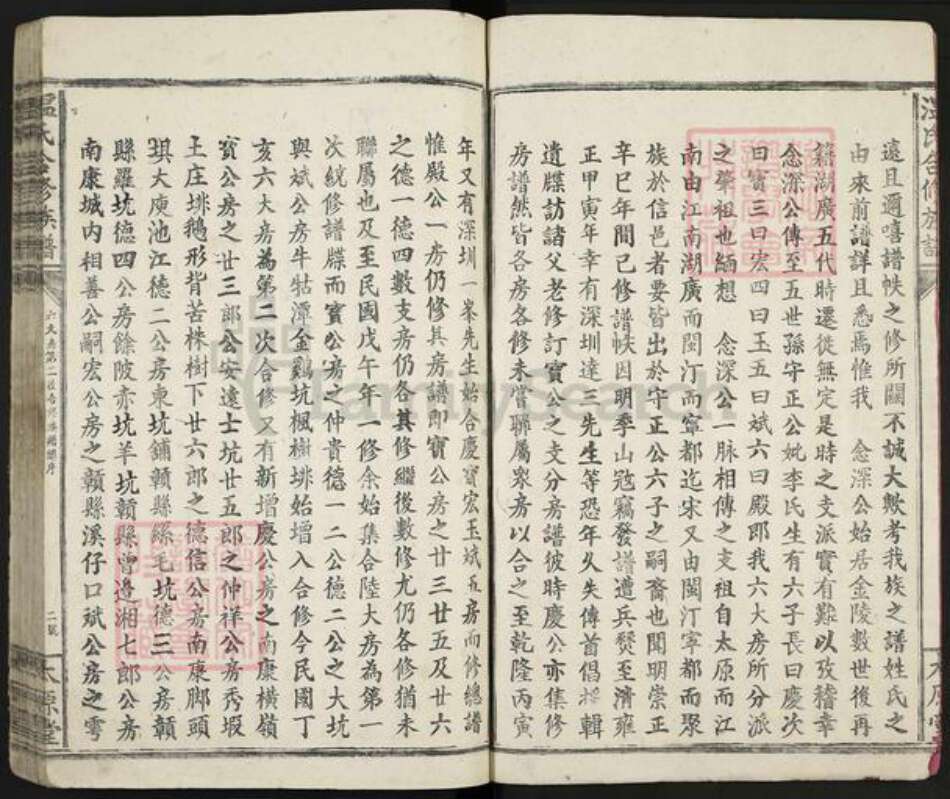 遠且邇嘻譜帙之修所關不誠大歟考我族之譜姓氏之
由來前譜詳且悉焉惟我 念深公始居金陵數世後再
籍湖廣五代時遷徙無定是時之支派實有難以攷稽幸
念深公傳至五世孫守正公妣李氏生有六子長曰慶次
曰寳三曰宏四曰玉五曰斌六曰殿即我六大房所分派
之肇祖也緬想 念深公一脉相傳之支祖自太原而江
南由江南湖廣而閩汀而寧都迄宋又由閩汀寧都而聚
族於信邑者要皆出於守正公六子之嗣裔也聞明崇正
辛巳年間已修譜帙因明季山冦竊發譜遭兵燹至清雍
正甲寅年幸有深圳達三先生等恐年乆失傳首倡採輯
遺牒訪諸父老修訂寳公之支分房譜彼時慶公亦集修
房譜然皆各房各修未嘗聯屬衆房以合之至乾隆丙寅
年又有深圳一峯先生始合慶寳宏玉斌五房而修總譜
惟殿公一房仍修其房譜即寳公房之廿三廿五及廿六
之德一德四數支房仍各其修繼後數修尤仍各修猶未
聯屬也及至民國戊午年一修余始集合陸大房為第一
次統修譜牒而寳公房之仲貴德一二公德二公之大坑
與斌公房牛牯潭金鷄坑楓樹埂始增入合修今民國丁
亥六大房為第二次合修又有新增慶公房之南康橫嶺
寳公房之廿三郎公安遠士坑廿五郎之仲祥公房秀塅
王庄埂鵝形背苦株樹下廿六郎之德信公房南康脚頭
垻大庾池江德二公房東坑鋪贛縣緜毛坑德三公房贛
縣羅坑德四公房餘陂赤坑羊坑贛縣曾邉湘七郎公房
南康城內相善公嗣宏公房之贛縣溪仔口斌公房之雩
溫氏合修族譜
六大房第二次合修族譜總序
二號
太原堂
FamilySearch